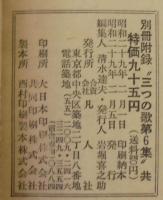 別冊附録 “三つの歌第6集” 共
特価九十五円（送料四円）
昭和二十九年一月五日 印刷納本
昭和二十九年二月五日 発行
編集人 清水達夫・発行人 岩堀喜之助
発行所 合資会社 凡人社
東京都中央区築地二丁目八番地
電話築地(五五)
印刷所 大日本印刷株式会社
共同印刷株式会社
製本所 西村印刷製本株式会社